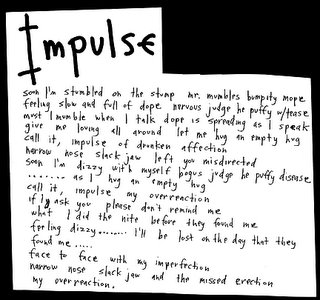 Impulse
soon I'm stumbled on the stump mr. mumbles bumpity mope
feeling slow and full of dope nervous judge he puffy w/tease
must I mumble when I talk dope is spreading as I speak
give me loving all around let me hug an empty hug
call it, impulse of drunken affection
narrow nose slack jaw left you misdirected
soon I'm dizzy with myself bogus judge he puffy disease
........ as I hug an empty hug
call it, impulse my overreaction
if I ask you please don't remind me
what I did the nite before they found me
feeling dizzy........ I'll be lost on the day that they
found me.....
face to face with my imperfection
narrow nose slack jaw and the missed erection
my overreaction.